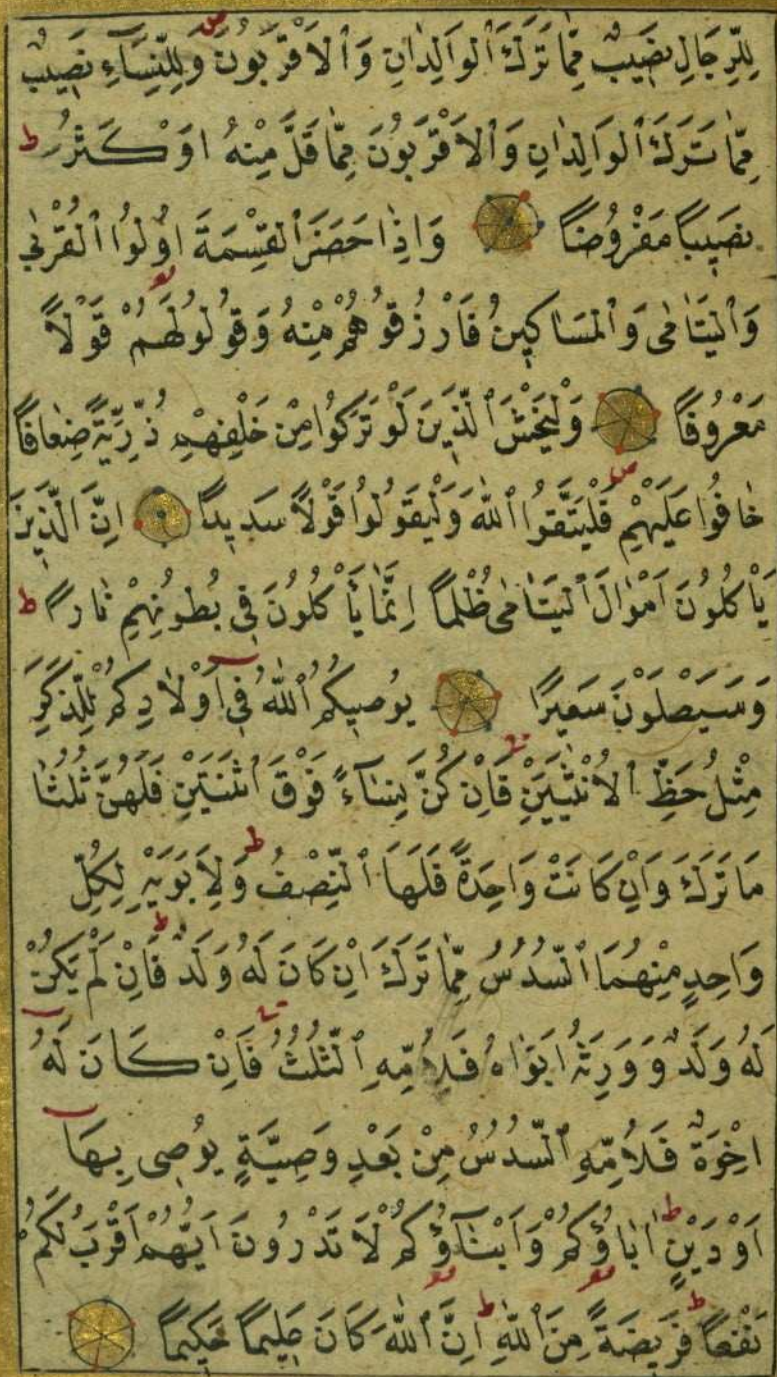 لِلرِّجَالِ نَصِيبٌ مِمَّا تَرَكَ ٱلْوَالِدَانِ وَٱلْاَقْرَبُونَ وَلِلنِّسَٓاءِ نَصِيبٌ
مِمَّا تَرَكَ ٱلْوَالِدَانِ وَٱلْاَقْرَبُونَ مِمَّا قَلَّ مِنْهُ اَوْ كَثُرَ ط
نَصِيبًا مَفْرُوضًا وَاِذَا حَضَرَ ٱلْقِسْمَةَ اُولُوا ٱلْقُرْبٰى
وَٱلْيَتَامٰى وَٱلْمَسَاكِينُ فَارْزُقُوهُمْ مِنْهُ وَقُولُوا لَهُمْ قَوْلًا
مَعْرُوفًا وَلْيَخْشَ ٱلَّذِينَ لَوْ تَرَكُوا مِنْ خَلْفِهِمْ ذُرِّيَّةً ضِعَافًا
خَافُوا عَلَيْهِمْ فَلْيَتَّقُوا ٱللّٰهَ وَلْيَقُولُوا قَوْلًا سَدِيدًا اِنَّ ٱلَّذِينَ
يَأْكُلُونَ اَمْوَالَ ٱلْيَتَامٰى ظُلْمًا اِنَّمَا يَأْكُلُونَ فِي بُطُونِهِمْ نَارًا ط
وَسَيَصْلَوْنَ سَعِيرًا يُوصِيكُمُ ٱللّٰهُ فِٓي اَوْلَادِكُمْ لِلذَّكَرِ
مِثْلُ حَظِّ ٱلْاُنْثَيَيْنِ فَاِنْ كُنَّ نِسَٓاءً فَوْقَ ٱثْنَتَيْنِ فَلَهُنَّ ثُلُثَا
مَا تَرَكَ وَاِنْ كَانَتْ وَاحِدَةً فَلَهَا ٱلنِّصْفُ ط وَلِاَبَوَيْهِ لِكُلِّ
وَاحِدٍ مِنْهُمَا ٱلسُّدُسُ مِمَّا تَرَكَ اِنْ كَانَ لَهُ وَلَدٌ ط فَاِنْ لَمْ يَكُنْ
لَهُ وَلَدٌ وَوَرِثَهُ اَبَوَاهُ فَلِاُمِّهِ ٱلثُّلُثُ فَاِنْ كَانَ لَهُ
اِخْوَةٌ فَلِاُمِّهِ ٱلسُّدُسُ مِنْ بَعْدِ وَصِيَّةٍ يُوصِي بِهَا
اَوْ دَيْنٍ ط اٰبَاؤُكُمْ وَاَبْنَٓاؤُكُمْ لَا تَدْرُونَ اَيُّهُمْ اَقْرَبُ لَكُمْ
نَفْعًا ط فَرِيضَةً مِنَ ٱللّٰهِ ط اِنَّ ٱللّٰهَ كَانَ عَلِيمًا حَكِيمًا